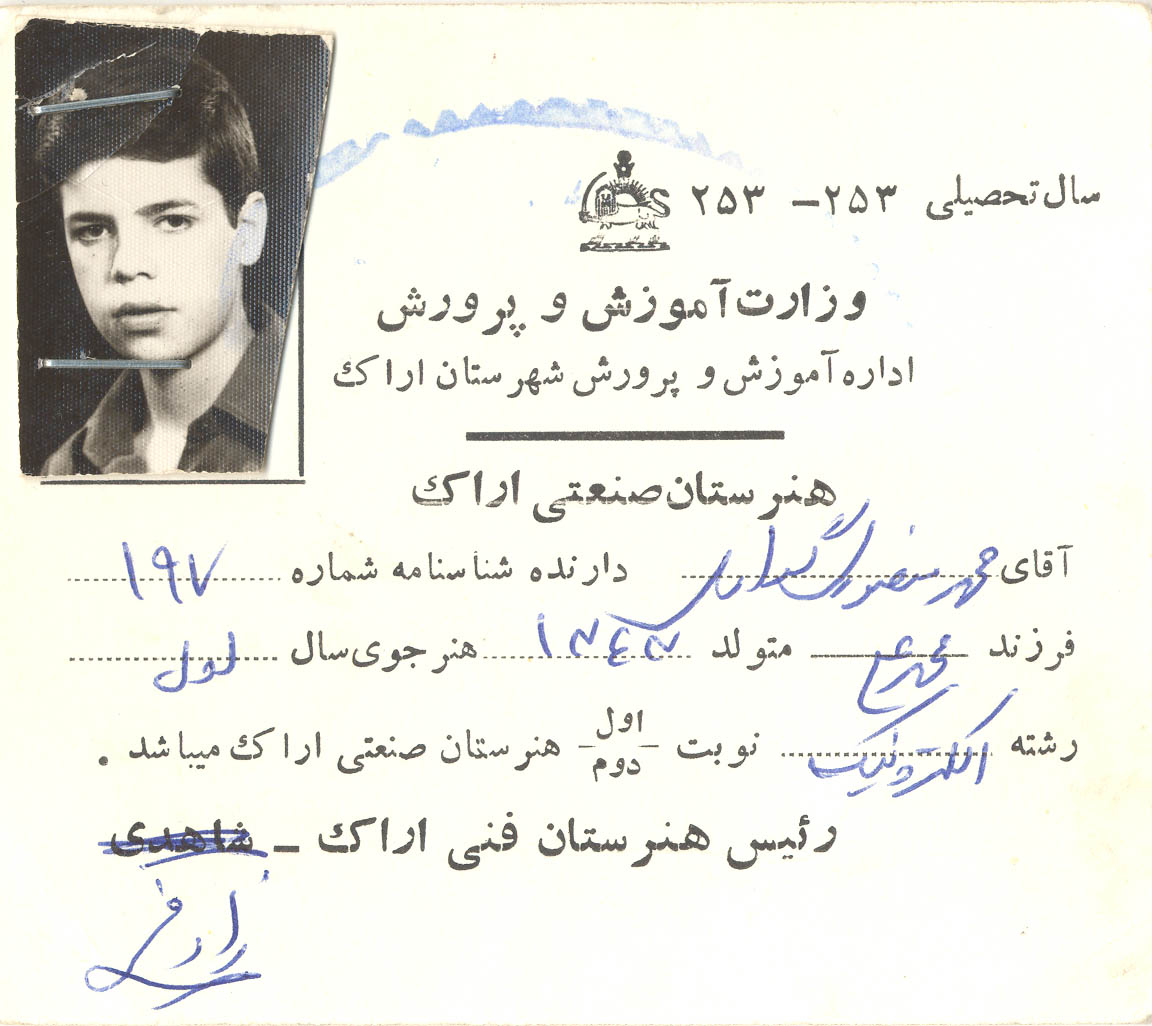 سال تحصیلی ۲۵۳ – ۲۵۳
وزارت آموزش و پرورش
اداره آموزش و پرورش شهرستان اراک
هنرستان صنعتی اراک
آقای محمد منصور دارنده شناسنامه شماره ۱۹۷
فرزند متولد ۱۳۴۳ هنرجوی سال اول
رشته الکترونیک نوبت اول
دوم هنرستان صنعتی اراک میباشد .
رئیس هنرستان فنی اراک – شاهدی